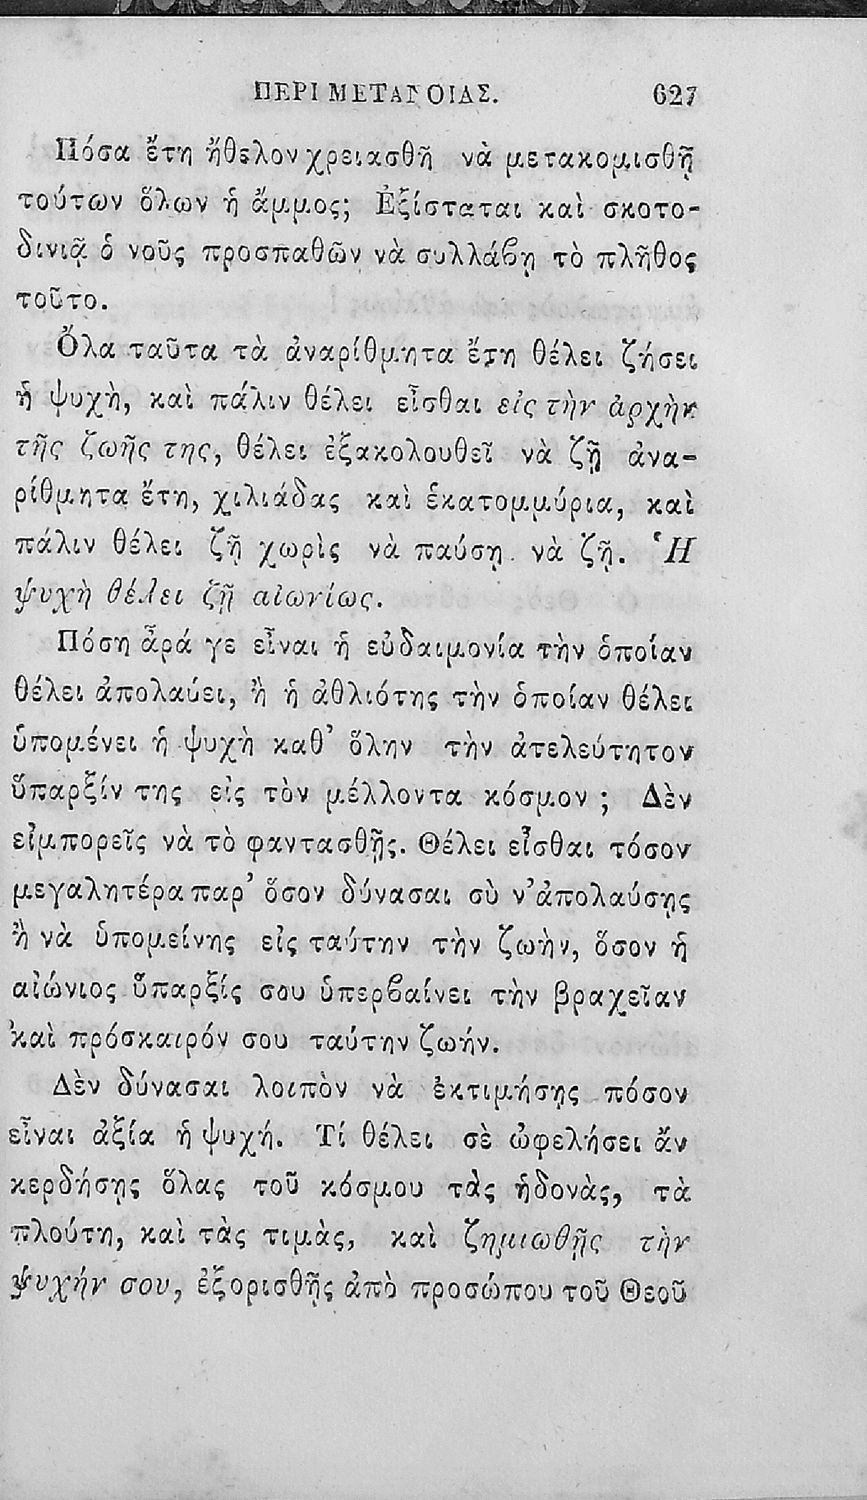 ΠΕΡΙ ΜΕΤΑΝΟΙΑΣ. 627
Πόσα ἔτη ἤθελον χρειασθῆ νὰ μετακομισθῇ
τούτων ὅλων ἡ ἄμμος; Ἐξίσταται καὶ σκοτο-
δινιᾷ ὁ νοῦς προσπαθῶν νὰ συλλάβῃ τὸ πλῆθος
τοῦτο.
Ὅλα ταῦτα τὰ ἀναρίθμητα ἔτη θέλει ζήσει
ἡ ψυχὴ, καὶ πάλιν θέλει εἶσθαι εἰς τὴν ἀρχὴν
τῆς ζωῆς της, θέλει ἐξακολουθεῖ νὰ ζῇ ἀνα-
ρίθμητα ἔτη, χιλιάδας καὶ ἑκατομμύρια, καὶ
πάλιν θέλει ζῇ χωρὶς νὰ παύσῃ νὰ ζῇ. Ἡ
ψυχὴ θέλει ζῇ αἰωνίως.
Πόση ἆρά γε εἶναι ἡ εὐδαιμονία τὴν ὁποίαν
θέλει ἀπολαύει, ἢ ἡ ἀθλιότης τὴν ὁποίαν θέλει
ὑπομένει ἡ ψυχὴ καθ' ὅλην τὴν ἀτελεύτητον
ὕπαρξίν της εἰς τὸν μέλλοντα κόσμον ; Δὲν
εἰμπορεῖς νὰ τὸ φαντασθῇς. Θέλει εἶσθαι τόσον
μεγαλητέρα παρ' ὅσον δύνασαι σὺ ν' ἀπολαύσῃς
ἢ νὰ ὑπομείνῃς εἰς ταύτην τὴν ζωὴν, ὅσον ἡ
αἰώνιος ὕπαρξίς σου ὑπερβαίνει τὴν βραχεῖαν
καὶ πρόσκαιρόν σου ταύτην ζωήν.
Δὲν δύνασαι λοιπὸν νὰ ἐκτιμήσῃς πόσον
εἶναι ἀξία ἡ ψυχή. Τί θέλει σὲ ὠφελήσει ἄν
κερδήσῃς ὅλας τοῦ κόσμου τὰς ἡδονὰς, τὰ
πλούτη, καὶ τὰς τιμὰς, καὶ ζημιωθῇς τὴν
ψυχήν σου, ἐξορισθῇς ἀπὸ προσώπου τοῦ Θεοῦ